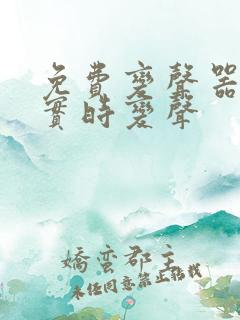 免費變聲器
實時變聲
嬌蠻郡主
未经同意禁止搭我